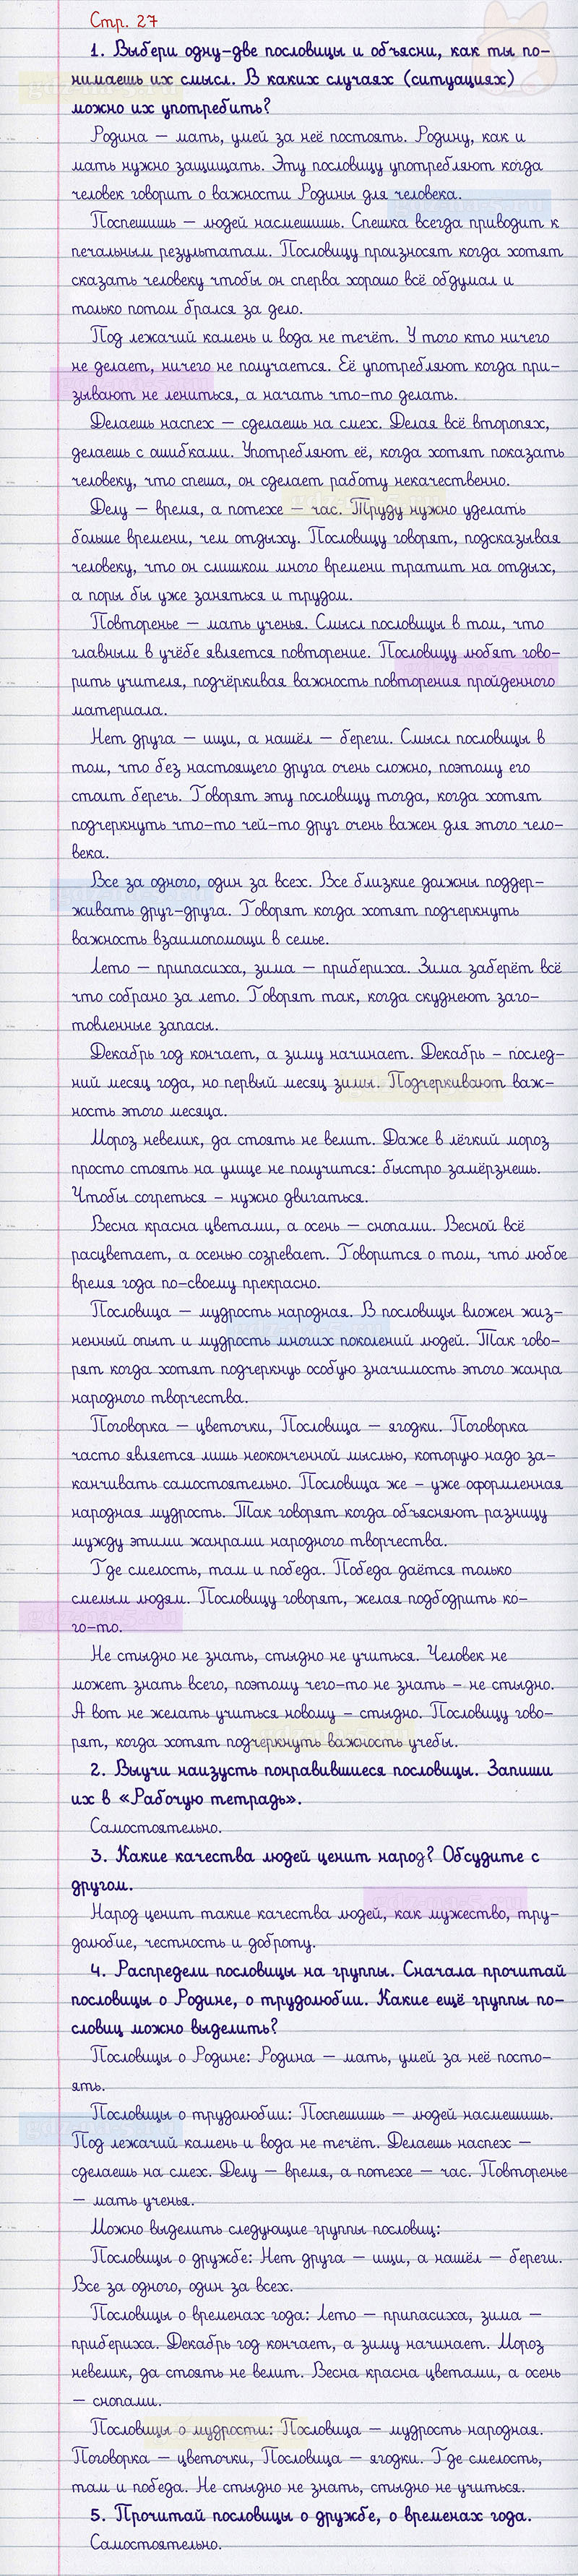 Стр. 27
1. Выбери одну-две пословицы и объясни, как ты по-
нимаешь их смысл. В каких случаях (ситуациях)
можно их употребить?
Родина — мать, умей за неё постоять. Родину, как и
мать нужно защищать. Эту пословицу употребляют когда
человек говорит о важности Родины для человека.
Поспешишь — людей насмешишь. Спешка всегда приводит к
печальным результатам. Пословицу произносят когда хотят
сказать человеку чтобы он сперва хорошо всё обдумал и
только потом брался за дело.
Под лежачий камень и вода не течёт. У того кто ничего
не делает, ничего не получается. Её употребляют когда при-
зывают не лениться, а начать что-то делать.
Делаешь наспех — сделаешь на смех. Делая всё второпях,
делаешь с ошибками. Употребляют её, когда хотят показать
человеку, что спеша, он сделает работу некачественно.
Делу — время, а потехе — час. Труду нужно уделать
больше времени, чем отдыху. Пословицу говорят, подсказывая
человеку, что он слишком много времени тратит на отдых,
а поры бы уже заняться и трудом.
Повторенье — мать ученья. Смысл пословицы в том, что
главным в учёбе является повторение. Пословицу любят гово-
рить учителя, подчёркивая важность повторения пройденного
материала.
Нет друга — ищи, а нашёл — береги. Смысл пословицы в
том, что без настоящего друга очень сложно, поэтому его
стоит беречь. Говорят эту пословицу тогда, когда хотят
подчеркнуть что-то чей-то друг очень важен для этого чело-
века.
Все за одного, один за всех. Все близкие должны поддер-
живать друг-друга. Говорят когда хотят подчеркнуть
важность взаимопомощи в семье.
Лето — припасиха, зима — прибериха. Зима заберёт всё
что собрано за лето. Говорят так, когда скуднеют заго-
товленные запасы.
Декабрь год кончает, а зиму начинает. Декабрь – послед-
ний месяц года, но первый месяц зимы. Подчеркивают важ-
ность этого месяца.
Мороз невелик, да стоять не велит. Даже в лёгкий мороз
просто стоять на улице не получится: быстро замёрзнешь.
Чтобы согреться – нужно двигаться.
Весна красна цветами, а осень — снопами. Весной всё
расцветает, а осенью созревает. Говорится о том, что любое
время года по-своему прекрасно.
Пословица — мудрость народная. В пословицы вложен жиз-
ненный опыт и мудрость многих поколений людей. Так гово-
рят когда хотят подчеркнуь особую значимость этого жанра
народного творчества.
Поговорка — цветочки, Пословица — ягодки. Поговорка
часто является лишь неоконченной мыслью, которую надо за-
канчивать самостоятельно. Пословица же – уже оформленная
народная мудрость. Так говорят когда объясняют разницу
мужду этими жанрами народного творчества.
Где смелость, там и победа. Победа даётся только
смелым людям. Пословицу говорят, желая подбодрить ко-
го-то.
Не стыдно не знать, стыдно не учиться. Человек не
может знать всего, поэтому чего-то не знать – не стыдно.
А вот не желать учиться новому – стыдно. Пословицу гово-
рят, когда хотят подчеркнуть важность учебы.
2. Выучи наизусть понравившиеся пословицы. Запиши
их в «Рабочую тетрадь».
Самостоятельно.
3. Какие качества людей ценит народ? Обсудите с
другом.
Народ ценит такие качества людей, как мужество, тру-
долюбие, честность и доброту.
4. Распредели пословицы на группы. Сначала прочитай
пословицы о Родине, о трудолюбии. Какие ещё группы по-
словиц можно выделить?
Пословицы о Родине: Родина — мать, умей за неё посто-
ять.
Пословицы о трудолюбии: Поспешишь — людей насмешишь.
Под лежачий камень и вода не течёт. Делаешь наспех —
сделаешь на смех. Делу — время, а потехе — час. Повторенье
— мать ученья.
Можно выделить следующие группы пословиц:
Пословицы о дружбе: Нет друга — ищи, а нашёл — береги.
Все за одного, один за всех.
Пословицы о временах года: Лето — припасиха, зима —
прибериха. Декабрь год кончает, а зиму начинает. Мороз
невелик, да стоять не велит. Весна красна цветами, а осень
— снопами.
Пословицы о мудрости: Пословица — мудрость народная.
Поговорка — цветочки, Пословица — ягодки. Где смелость,
там и победа. Не стыдно не знать, стыдно не учиться.
5. Прочитай пословицы о дружбе, о временах года.
Самостоятельно.